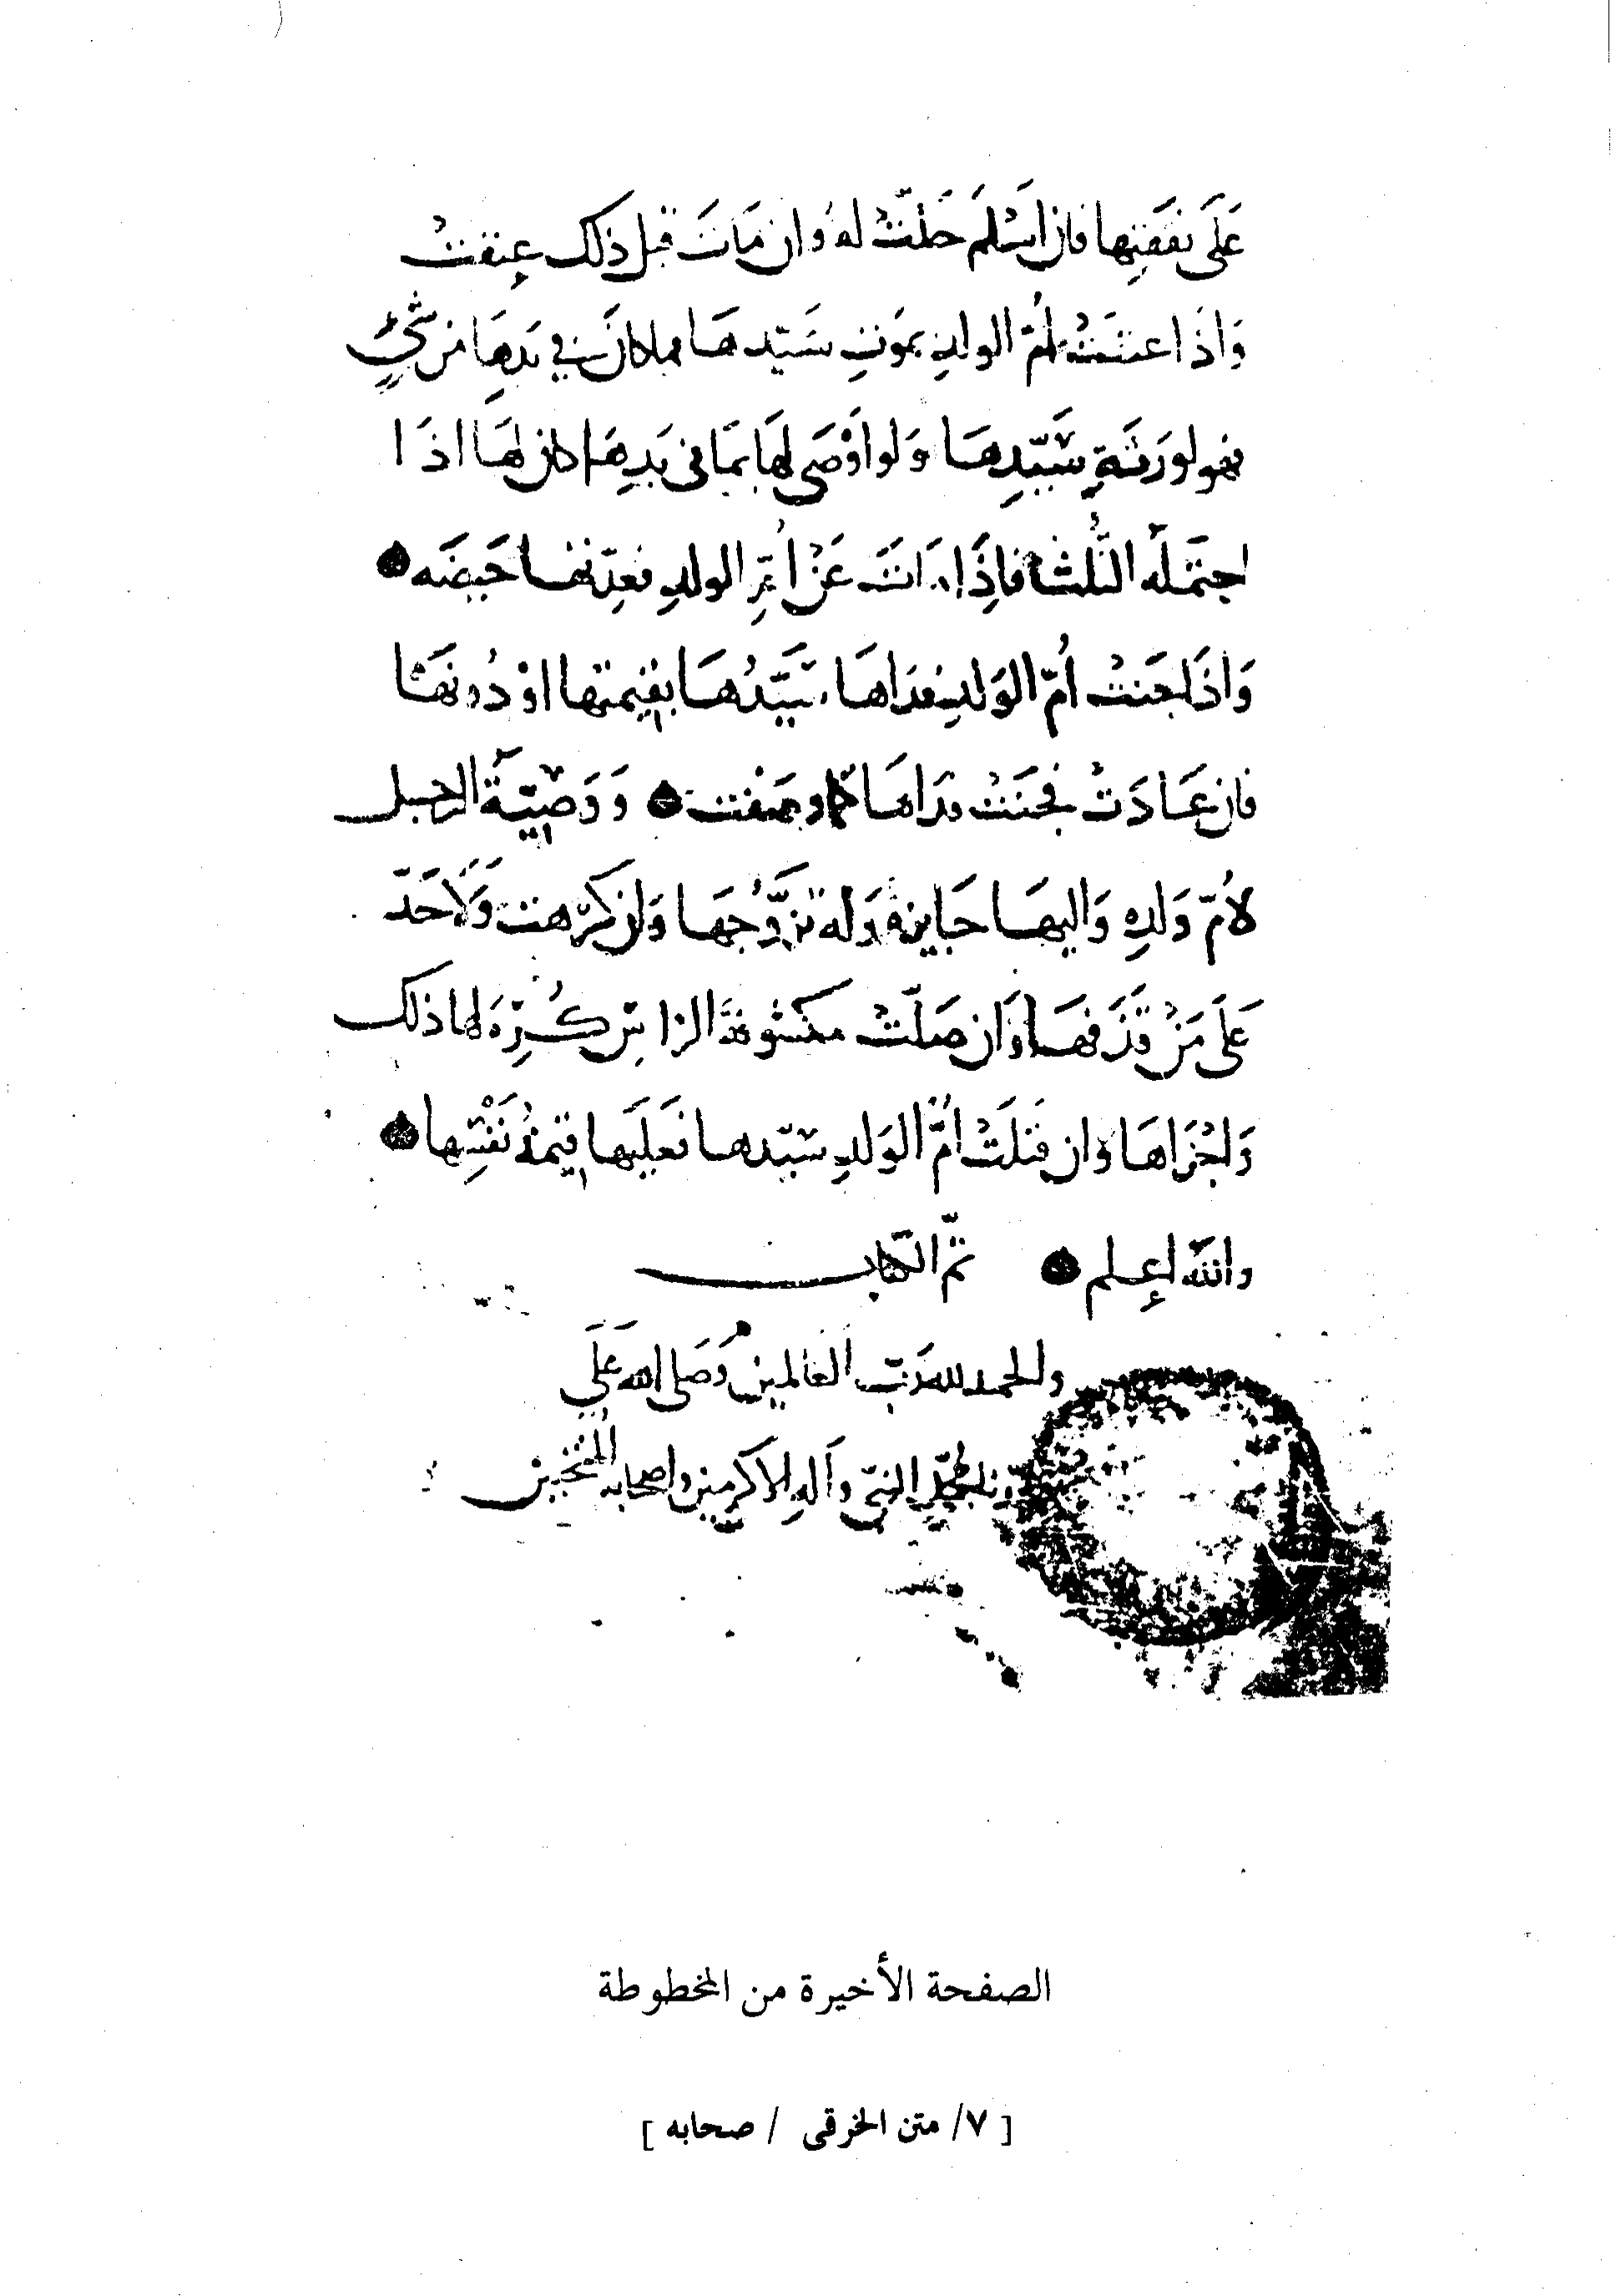 عَلَى نفَقتِها فان اسْلمَ حَلّتْ لهُ وان مَاتَ قبل ذلك عتقتْ
وَاذَا عتقَتْ أمّ الولدِ بموتِ سَيّدهَا فما كانَ في يَدِهَا من شَيْءٍ
فهو لورَثةِ سَيّدِهَا وَلو اوْصَى لهَا بمَا في يَدِهَا كان لهَا اذَا
احتمَلهُ الثُّلث فاذَا مَاتَ عَنْ أمّ الولدِ فعِدّتها حَيضَه
وَاذَا جَنتْ أمّ الوَلدِ فدَاهَا سَيّدُهَا بقيمتها اوْ دُونهَا
فان عَادَتْ فجنَتْ فدَاهَا كما وصفت وَوَصِيّةُ الرجل
لأمّ وَلدِه وَاليهَا جَايزة وَله تزَوُّجهَا وَان كرهت وَلَا حَدّ
عَلَى مَنْ قذَفهَا وَان صَلّتْ مكشوفةَ الراس كُرِهَ لها ذلك
وَاجْزَاهَا وان قتلَتْ أمُّ الوَلدِ سيّدهَا فعَليها قيمةُ نَفْسِها
والله اعلم تمّ الكتاب
والحمد لله رَبّ العالمين وَصَلى الله عَلَى
محمّدٍ النبيّ وآلهِ الاكرمين واصحابه المنتخبين
الصفحة الأخيرة من المخطوطة
[ ٧/ متن الخرقى / صحابه ]